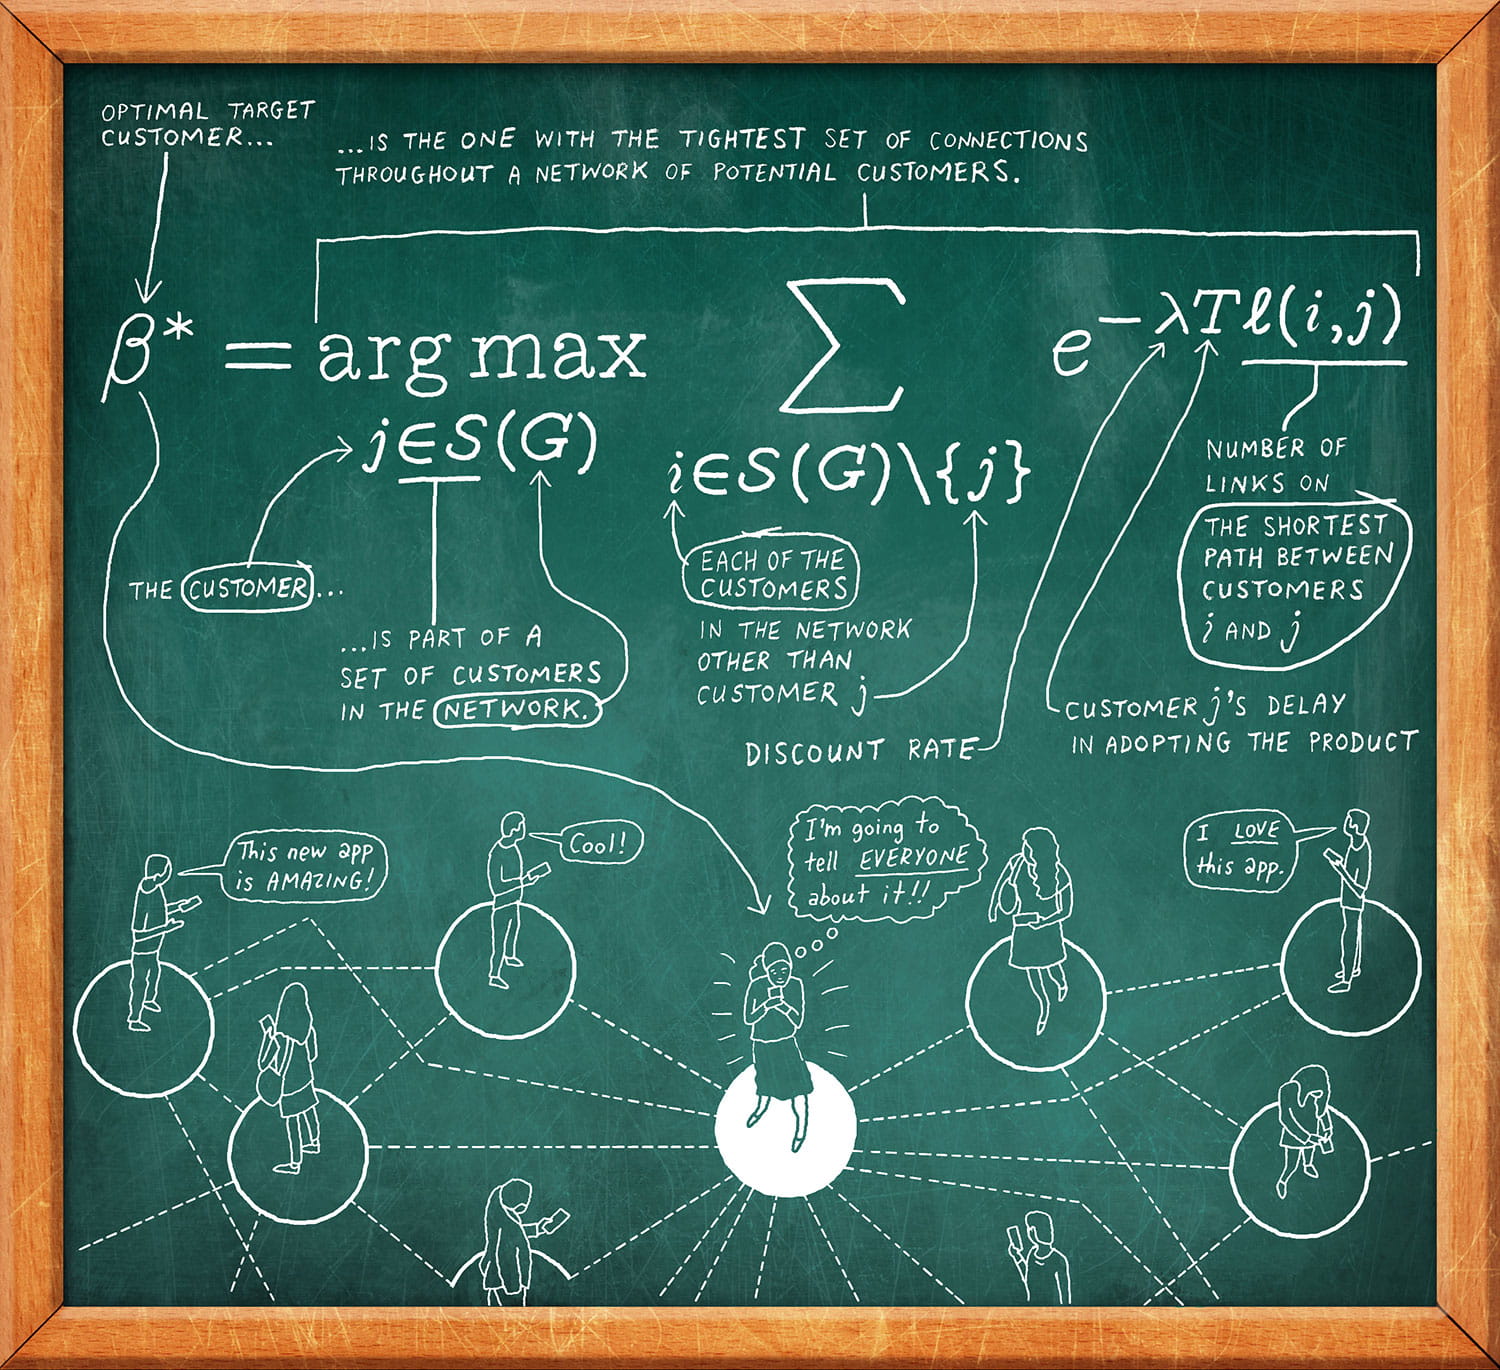 OPTIMAL TARGET
CUSTOMER...
...IS THE ONE WITH THE TIGHTEST SET OF CONNECTIONS
THROUGHOUT A NETWORK OF POTENTIAL CUSTOMERS.
β* = arg max ∑ e^−λTℓ(i,j)
j∈S(G)
i∈S(G)\{j}
THE CUSTOMER...
...IS PART OF A
SET OF CUSTOMERS
IN THE NETWORK.
EACH OF THE
CUSTOMERS
IN THE NETWORK
OTHER THAN
CUSTOMER j
NUMBER OF
LINKS ON
THE SHORTEST
PATH BETWEEN
CUSTOMERS
i AND j
DISCOUNT RATE
CUSTOMER j'S DELAY
IN ADOPTING THE PRODUCT
This new app
is AMAZING!
Cool!
I'm going to
tell EVERYONE
about it!!
I LOVE
this app.